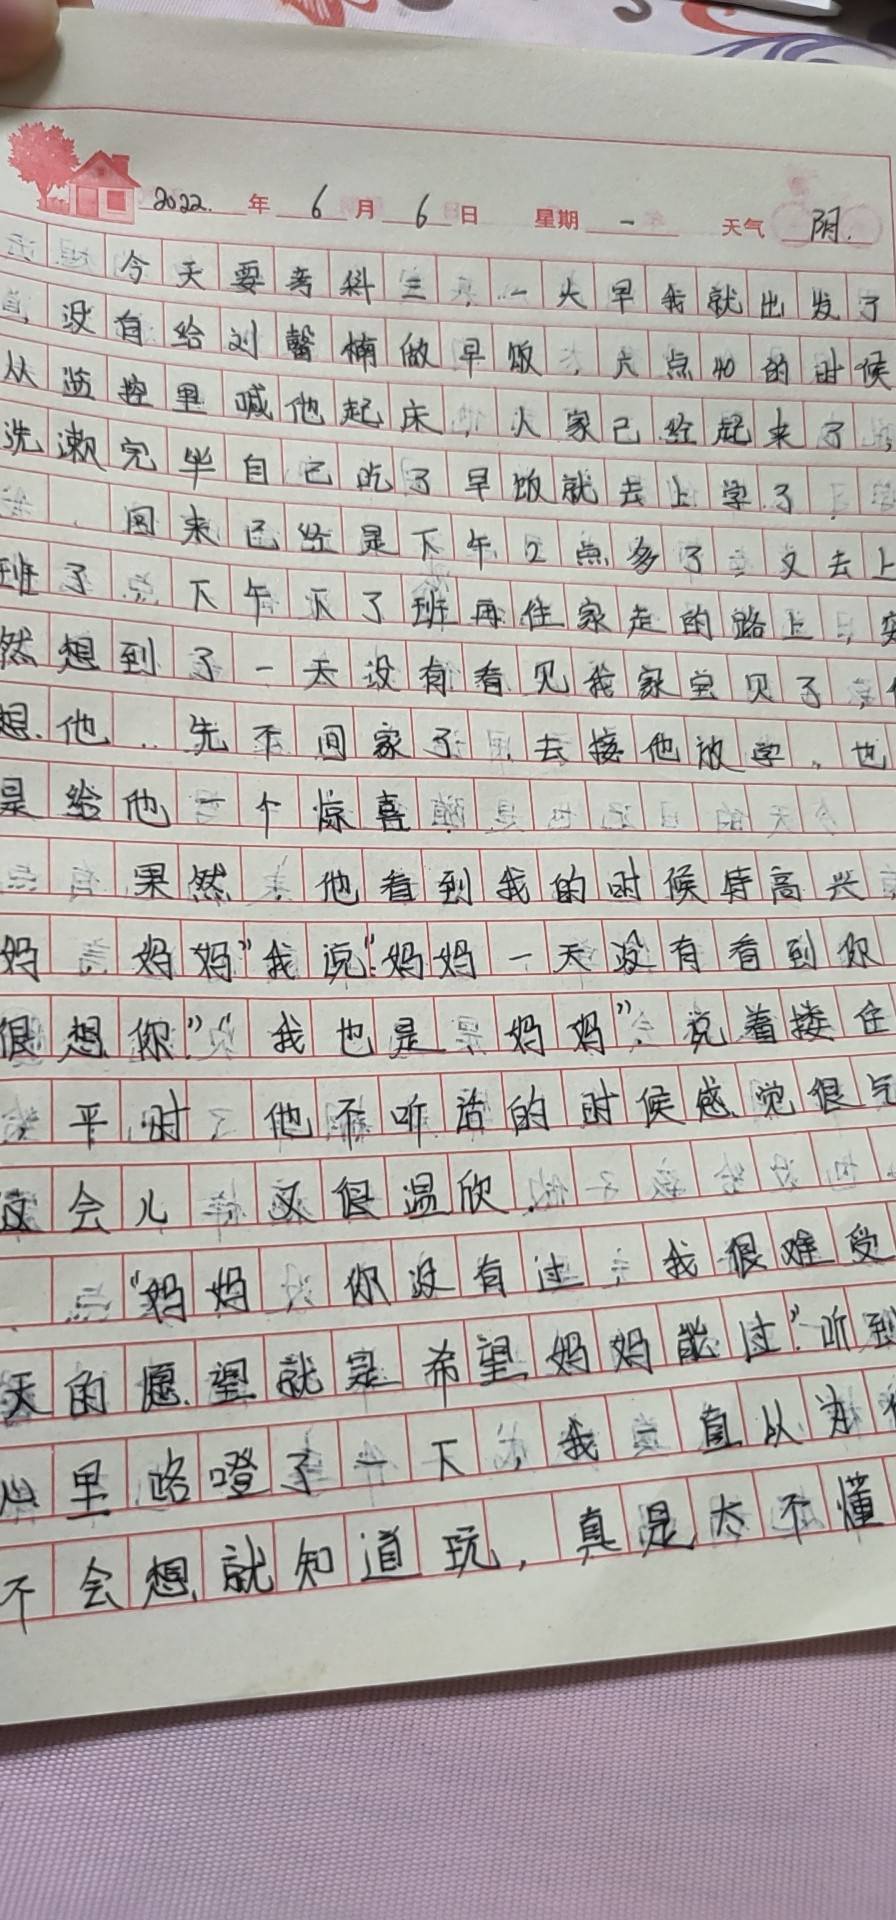 2022.年 6月 6日 星期一 天气 阴.
今天要考科三,一大早我就出发了
,没有给刘馨楠做早饭,六点40的时候
从监控里喊他起床,人家己经起来了,
洗漱完毕自己吃了早饭就去上学了.
回来己经是下午2点多了又去上
班了.下午下了班再往家走的路上,突
然想到了一天没有看见我家宝贝了,
想他..先不回家了,去接他放学,也
是给他一个惊喜
果然 他看到我的时候特高兴
妈 妈妈”我说“妈妈一天没有看到你
很想你”“我也是 妈妈”.说着搂住
平时 他不听话的时候感觉很气
这会儿 又很温欣.
“妈妈 你没有过 我很难受
天的愿望就是希望妈妈能过”.听到
心里咯噔了一下,我一直以为
不会想,就知道玩,真是太不懂